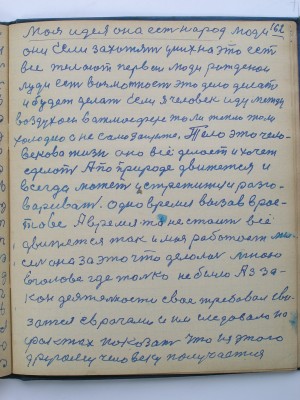 162
Моя идея она ест народ люди
они Если захотят у них на это ест
все желают первои люди рожденои
люди ест возможност это дело делат
и будет делат Если я человек иду между
воздухом в атмосфере то ли тепло том
холодно а не самозащите. Тело это чело-
века жизн оно всё делает и хочет
сделат А по природе движется и
всегда может встретится и разго-
вариват. Одно время вызов врас-
тове А время то не стоит всё
движется так и моя работает мы-
сел она за это что делолас мною
Еголове где толко не было А за-
кон деятелности свое требовал свя-
затся с врачами и им следовало на
фактах показат что из этого
другому человеку получается